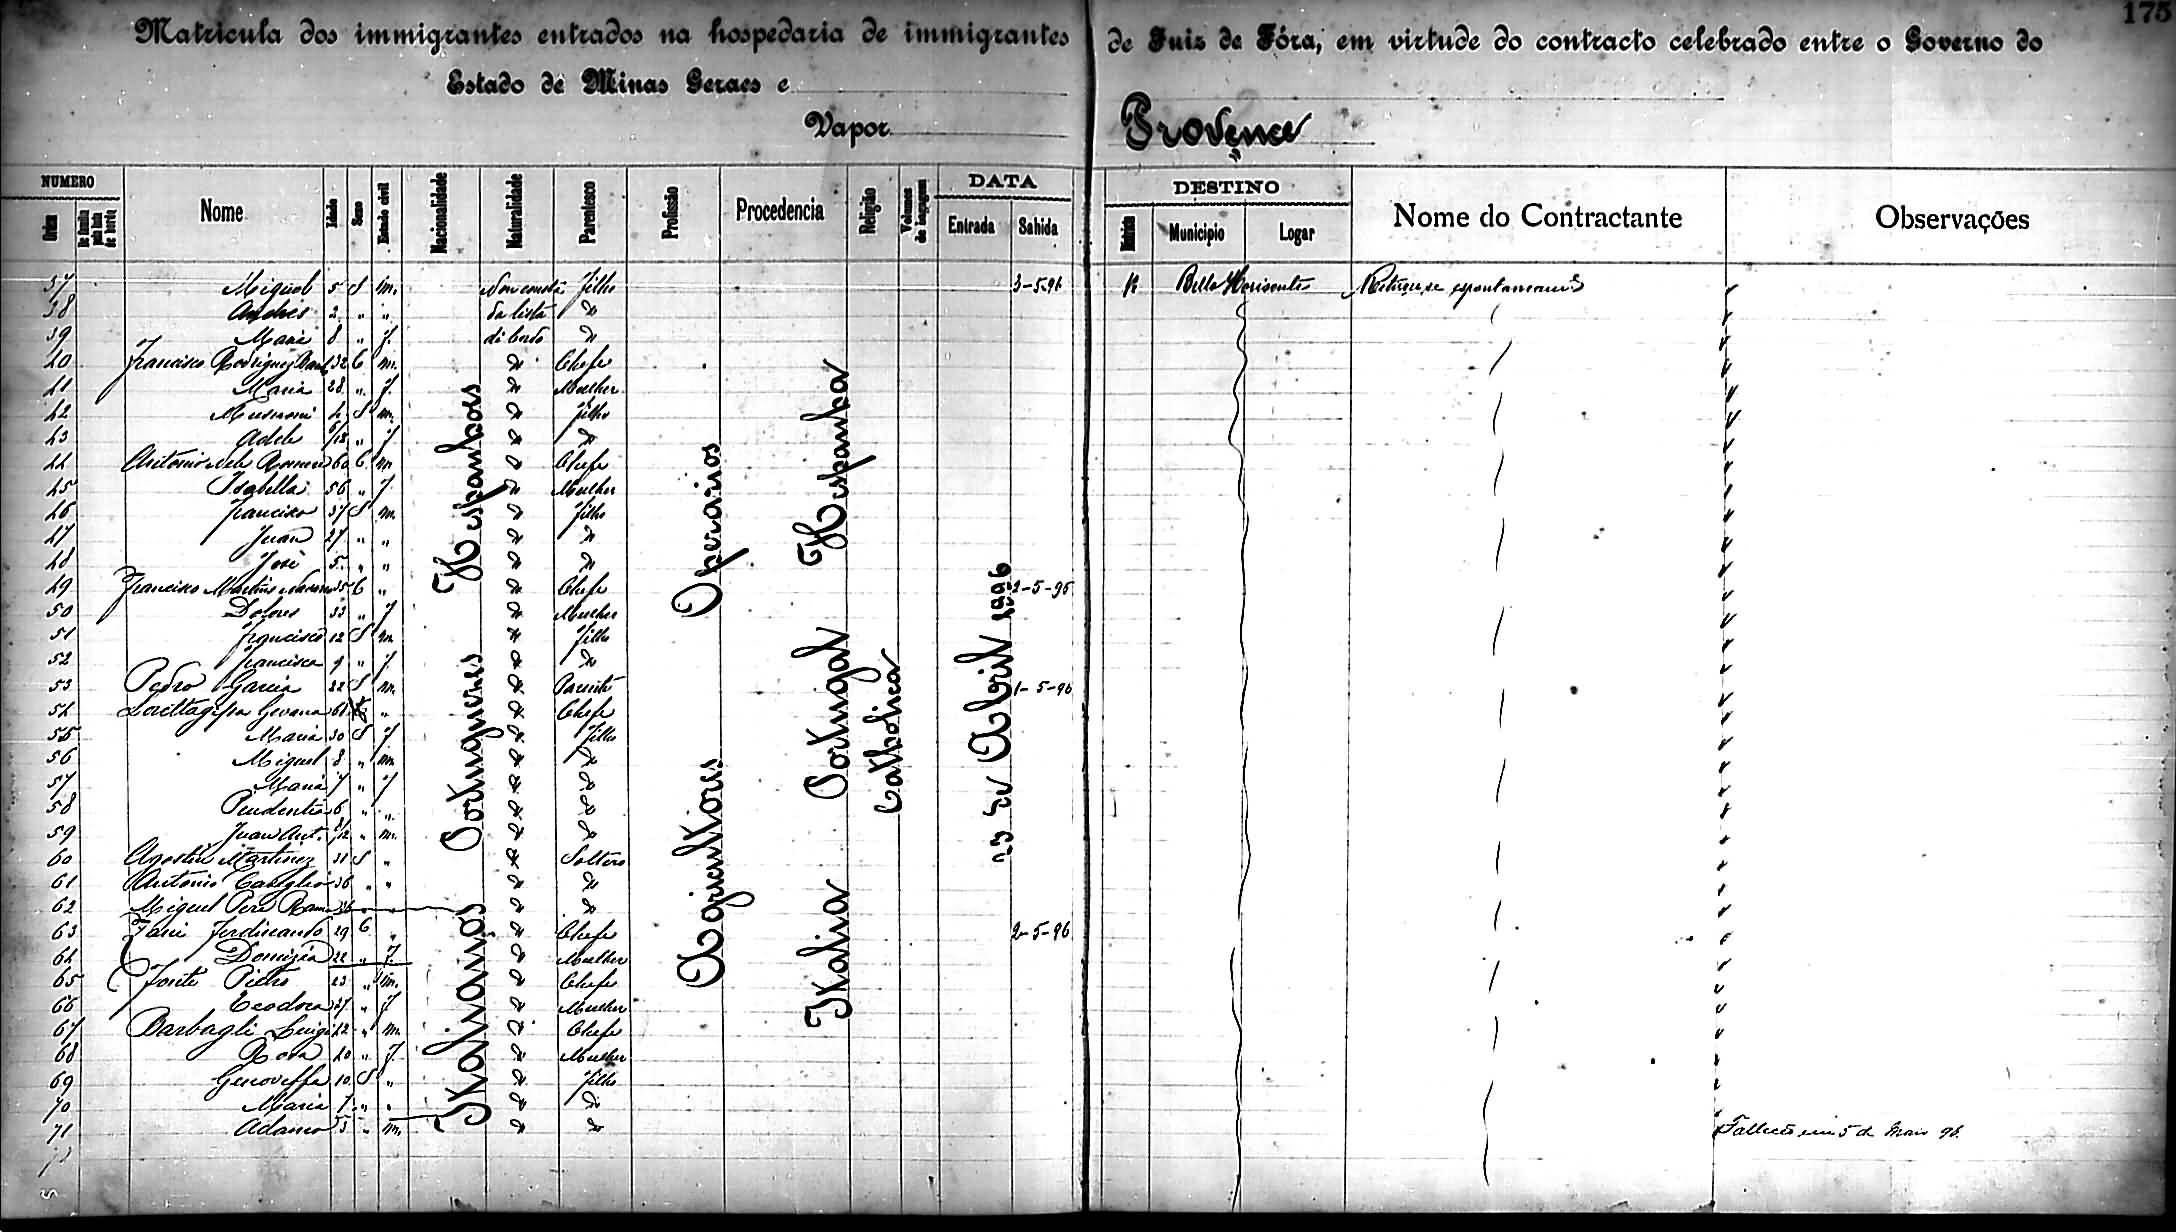 175
Matricula dos immigrantes entrados na hospedaria de immigrantes de Juiz de Fóra, em virtude do contracto celebrado entre o Governo do
Estado de Minas Geraes e
Vapor Provence
NUMERO Nome Idade Sexo Estado civil Nacionalidade Naturalidade Parentesco Profissão Procedencia Religião Volumes de bagagem DATA DESTINO Nome do Contractante Observações
Ordem De familia pela lista de bordo Entrada Sahida Municipio Logar
37 Miguel 5 S m. Non consta filho 3-5-96 Bello Horisonte
38 Andrés 2 " " da lista "
39 Maria 8 " f. di bordo "
40 Francisco Rodriguez 32 C m. " Chefe
41 Maria 28 " f. " Mulher
42 S m. " filho
43 Adele " f "
44 Antonio 60 C m " Chefe
45 Isabella 56 " f " Mulher
46 Francisco 37 S m. " filho
47 Juan 27 " " " "
48 José 5 " " " "
49 Francisco Martins 35 C " " Chefe 2-5-96
50 Dolores 33 " f " Mulher
51 Francisco 12 S m. " filho
52 Francisca 9 " f " "
53 Pedro Garcia 22 S m. " Parente 1-5-96
54 61 " " Chefe
55 Maria 30 S f " filho
56 Miguel 8 " m. " "
57 Maria 7 " f " "
58 Prudentia 6 " " " "
59 Juan Ant. " m. " "
60 Agostin Martinez 31 S " " Soltero
61 Antonio 36 " " " "
62 Miguel " "
63 Ferdinando 29 C " " Chefe 2-5-96
64 Domizia 22 " f. " Mulher
65 Pietro 23 " m. " Chefe
66 Teodora 27 " f " Mulher
67 Barbagli Luigi 42 " m. " Chefe
68 Rosa 40 " f. " Mulher
69 Genoveffa 10 S " " filho
70 Maria 7 " " " "
71 Adamo 5 " m. " " Falleceu em 5 de Maio 96.
Hespanhoes
Portuguezes
Italianos
Operarios
Agricultores
Hespanha
Portugal
Italia
Catholica
23 de Abril 1896